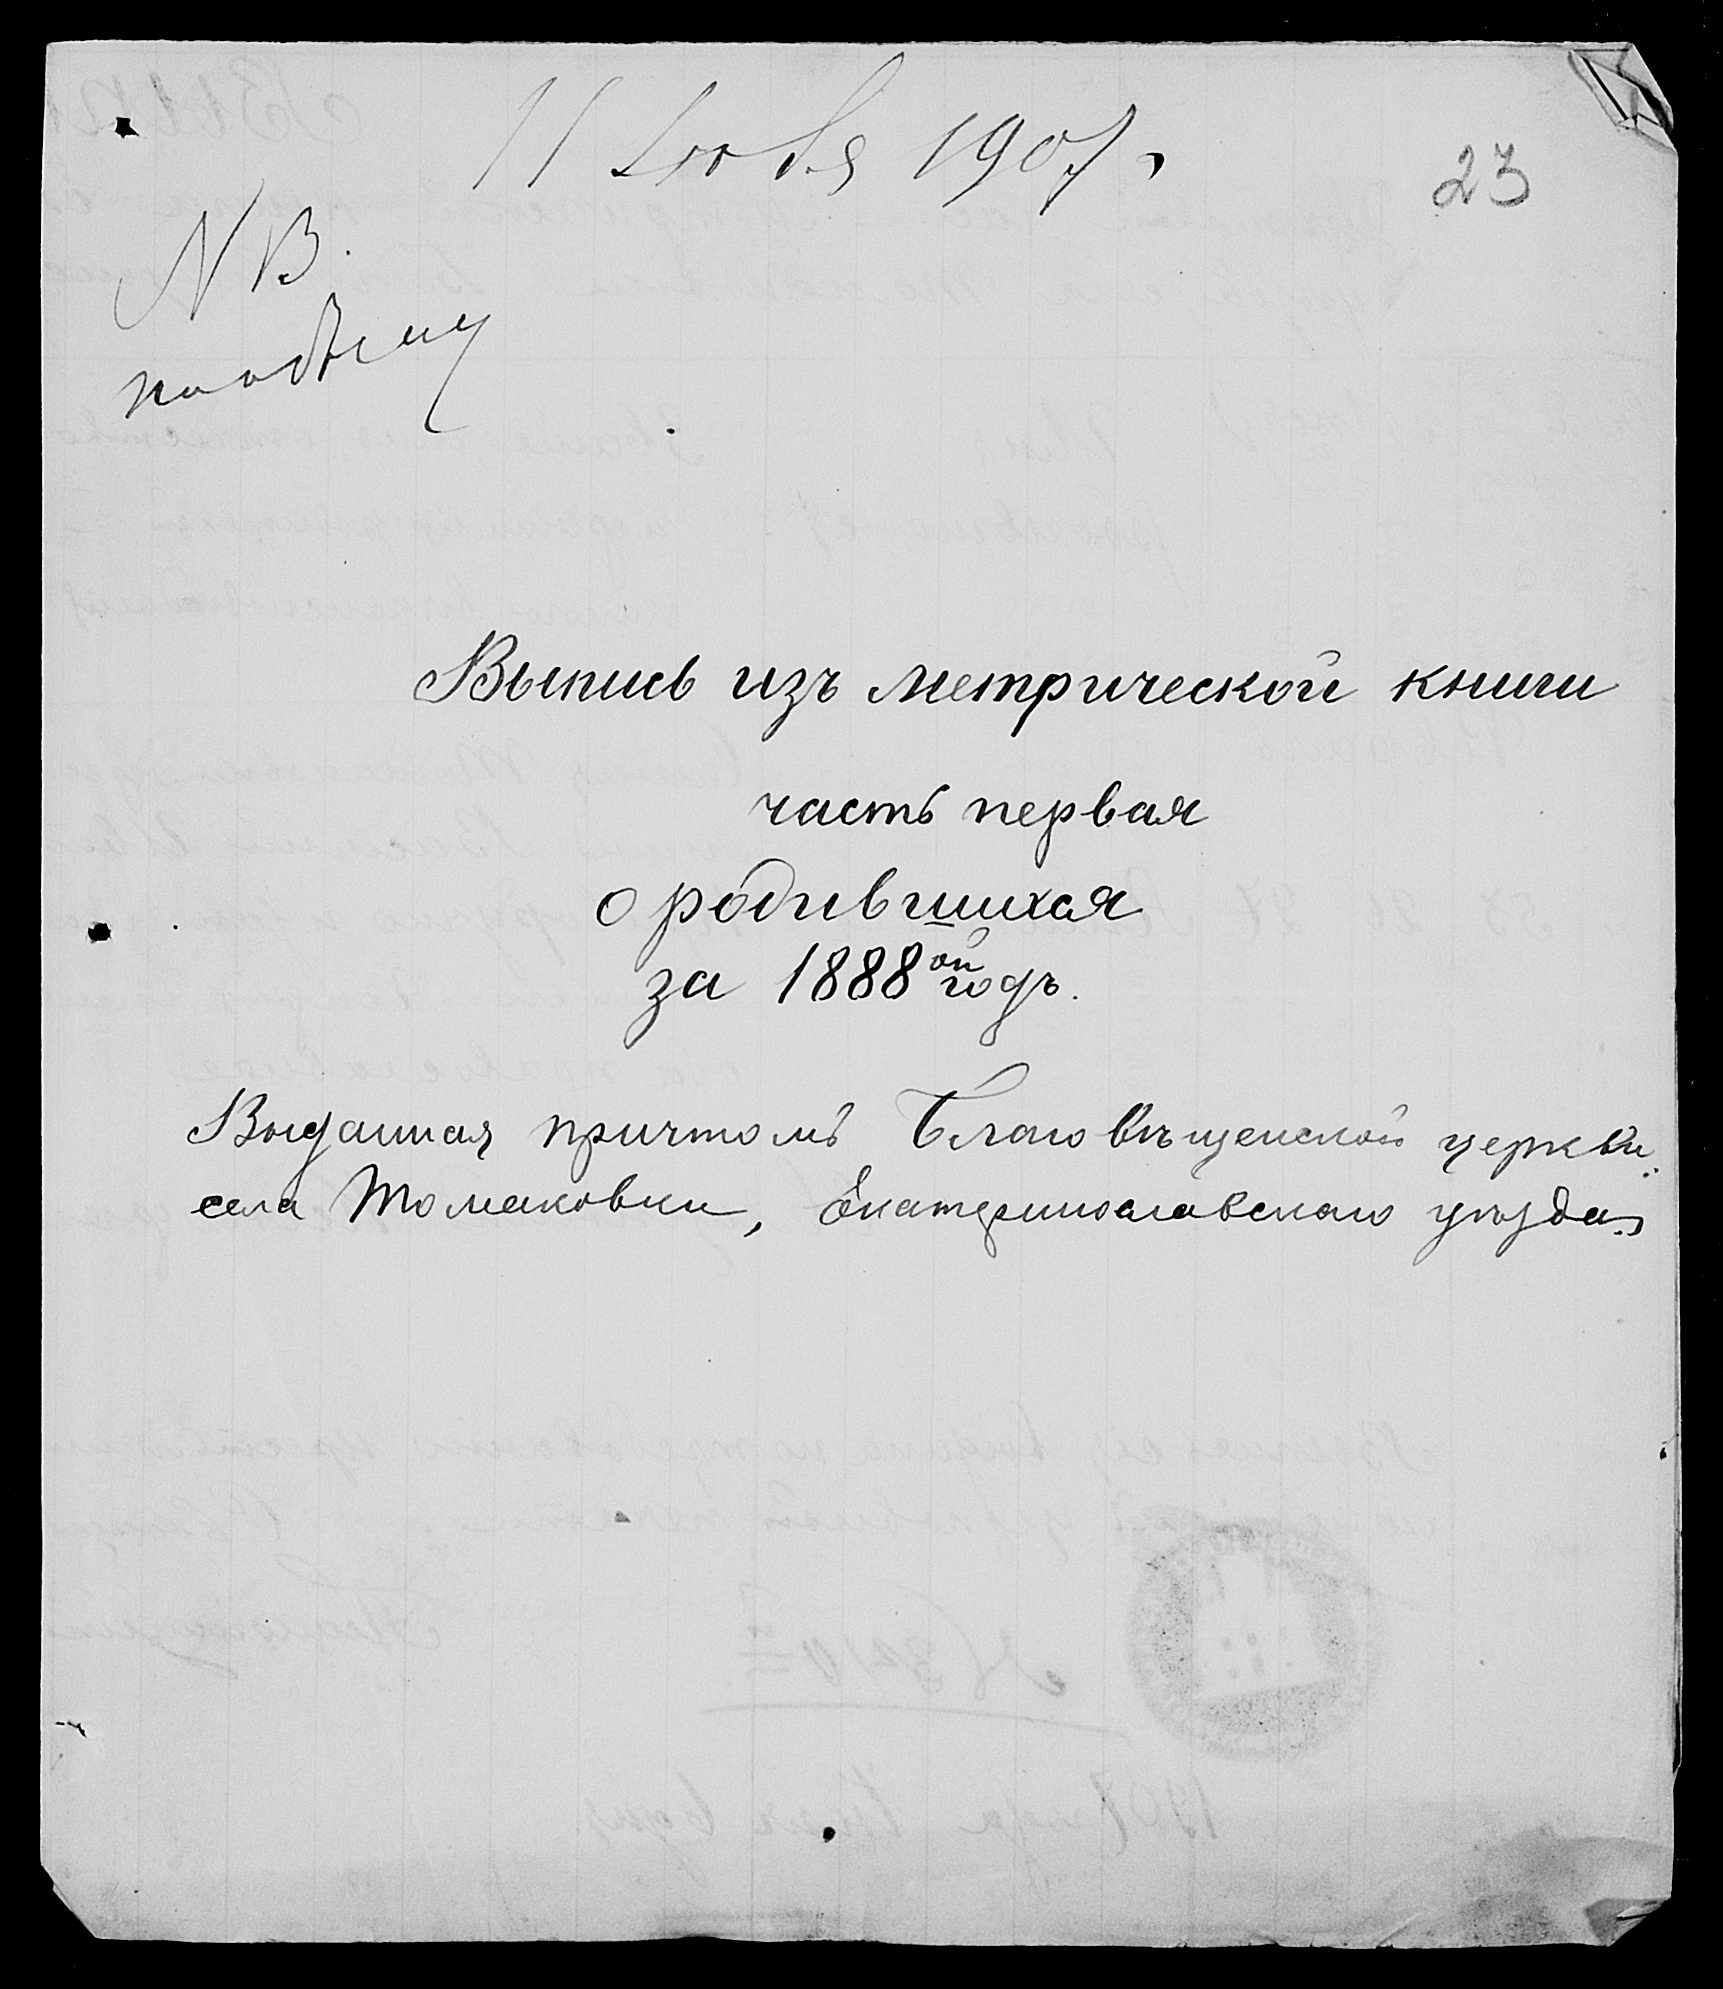 11 Июля 1907 г
23
NB.
к дѣлу
Выпись изъ метрической книги
часть первая
о родившихся
за 1888 ой годъ.
Выданная причтомъ Благовѣщенской церкви
села Томаковки, Екатеринославскаго уѣзда.